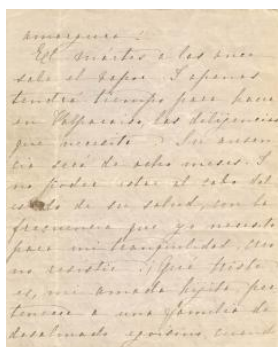 amargura :
El mártes a las once
sale el vapor I apenas
tendré tiempo para hacer
en Valparaiso, las diligencias
que necesito. Su ausen
cia será de ocho meses. I
no poder estar al cabo del
estado de su salud, con la
frecuencia que yo necesito
para mi tranquilidad,
no resistir. ¡Qué triste
es, mi amada hijita, per
tenecer a una familia de
desalmado egoismo, cuando